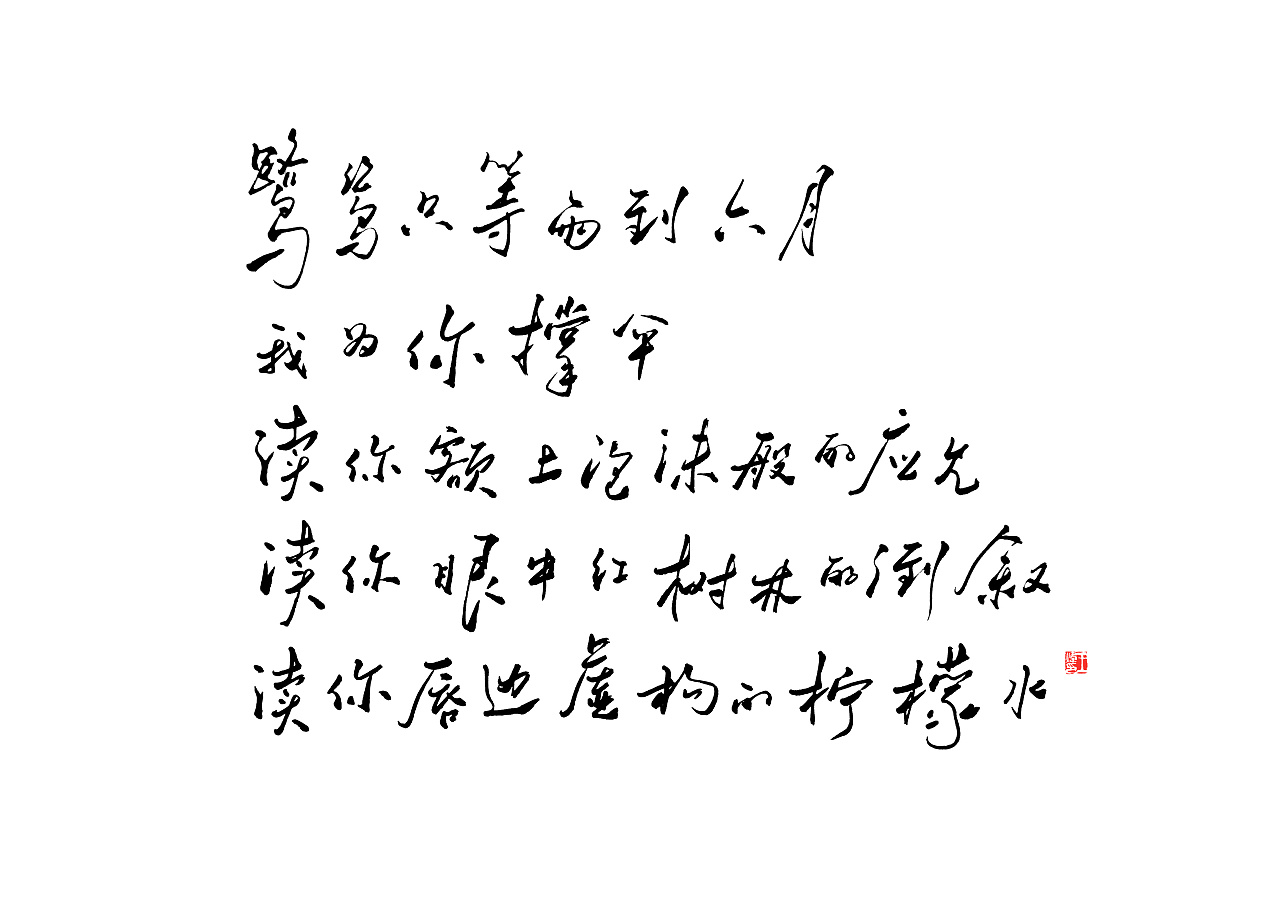 鹭鸶只等雨到六月
我为你撑伞
读你额上泡沫般的应允
读你眼中红树林的倒叙
读你唇边虚构的柠檬水